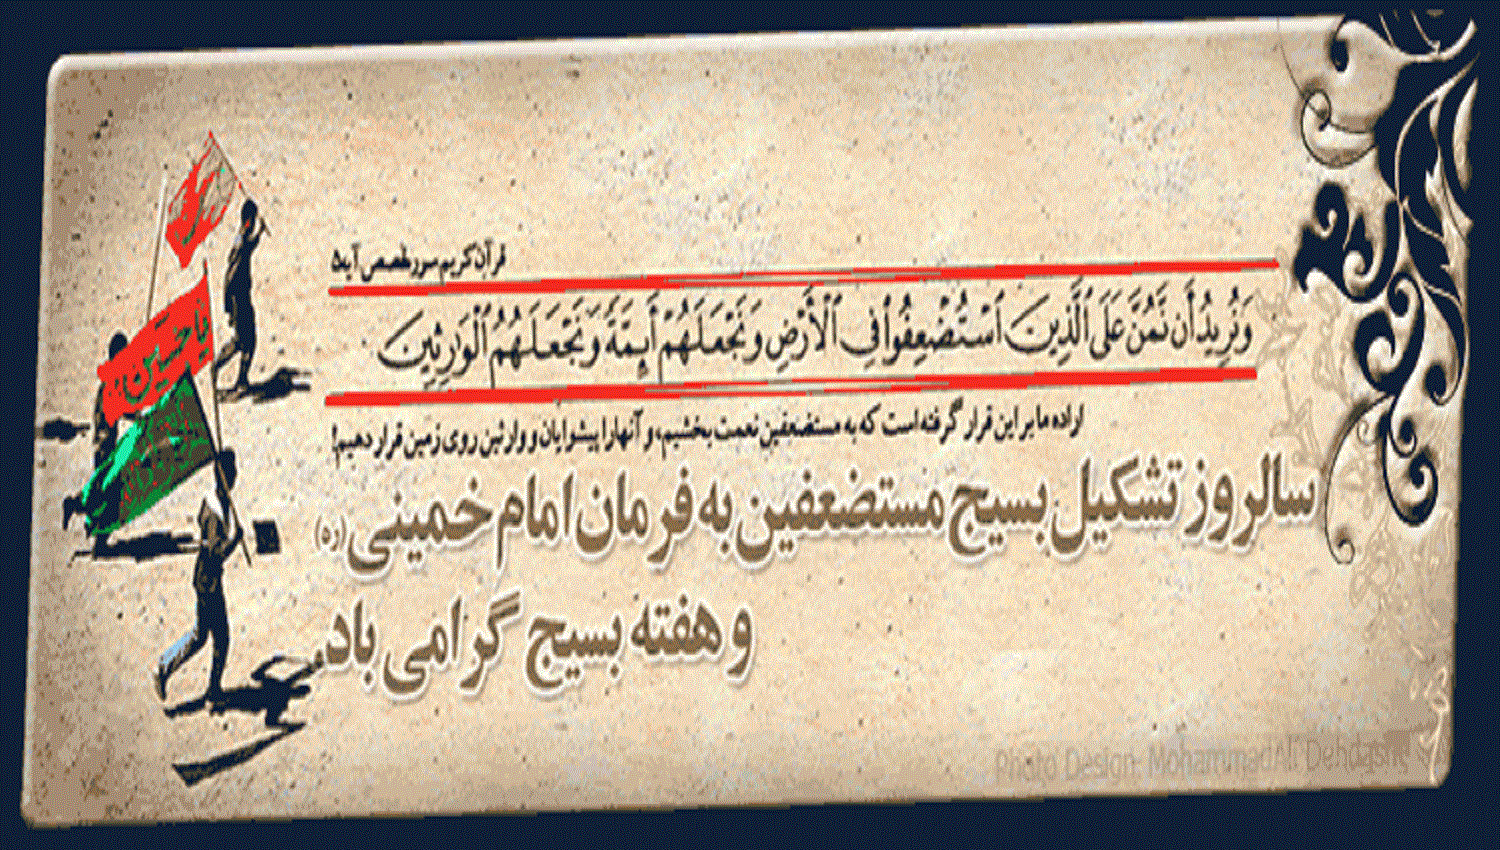 قرآن کریم سوره قصص آیه ۵
وَنُرِيدُ أَن نَّمُنَّ عَلَى ٱلَّذِينَ ٱسْتُضْعِفُوا۟ فِى ٱلْأَرْضِ وَنَجْعَلَهُمْ أَئِمَّةً وَنَجْعَلَهُمُ ٱلْوَٰرِثِينَ
اراده ما بر این قرار گرفته است که به مستضعفین نعمت بخشیم، و آنها را پیشوایان و وارثین روی زمین قرار دهیم!
سالروز تشکیل بسیج مستضعفین به فرمان امام خمینی (ره)
و هفته بسیج گرامی باد.
یا حسین
Photo Design: MohammadAli Dehdashti